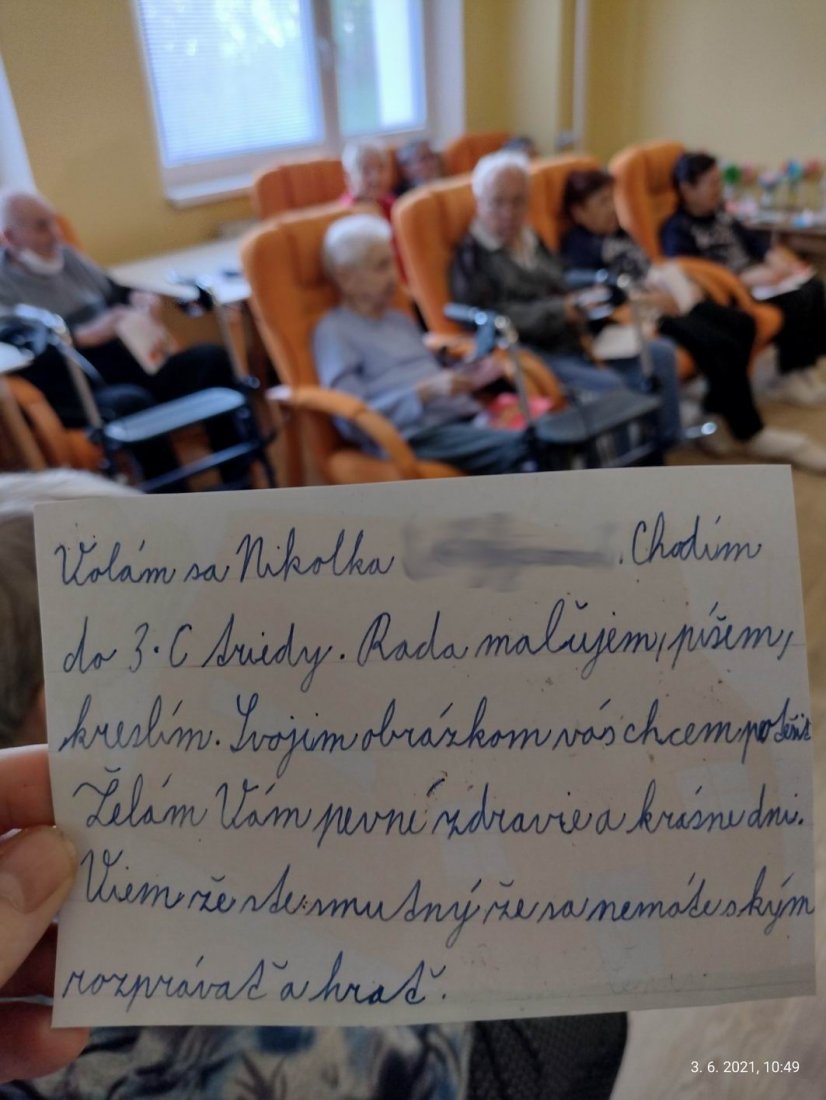 Volám sa Nikolka
. Chodím
do 3. C triedy. Rada maľujem, píšem,
kreslím. Svojim obrázkom vás chcem potešiť
Želám Vám pevné zdravie a krásne dni.
Viem že ste smutný že sa nemáte s kým
rozprávať a hrať.
3. 6. 2021, 10:49